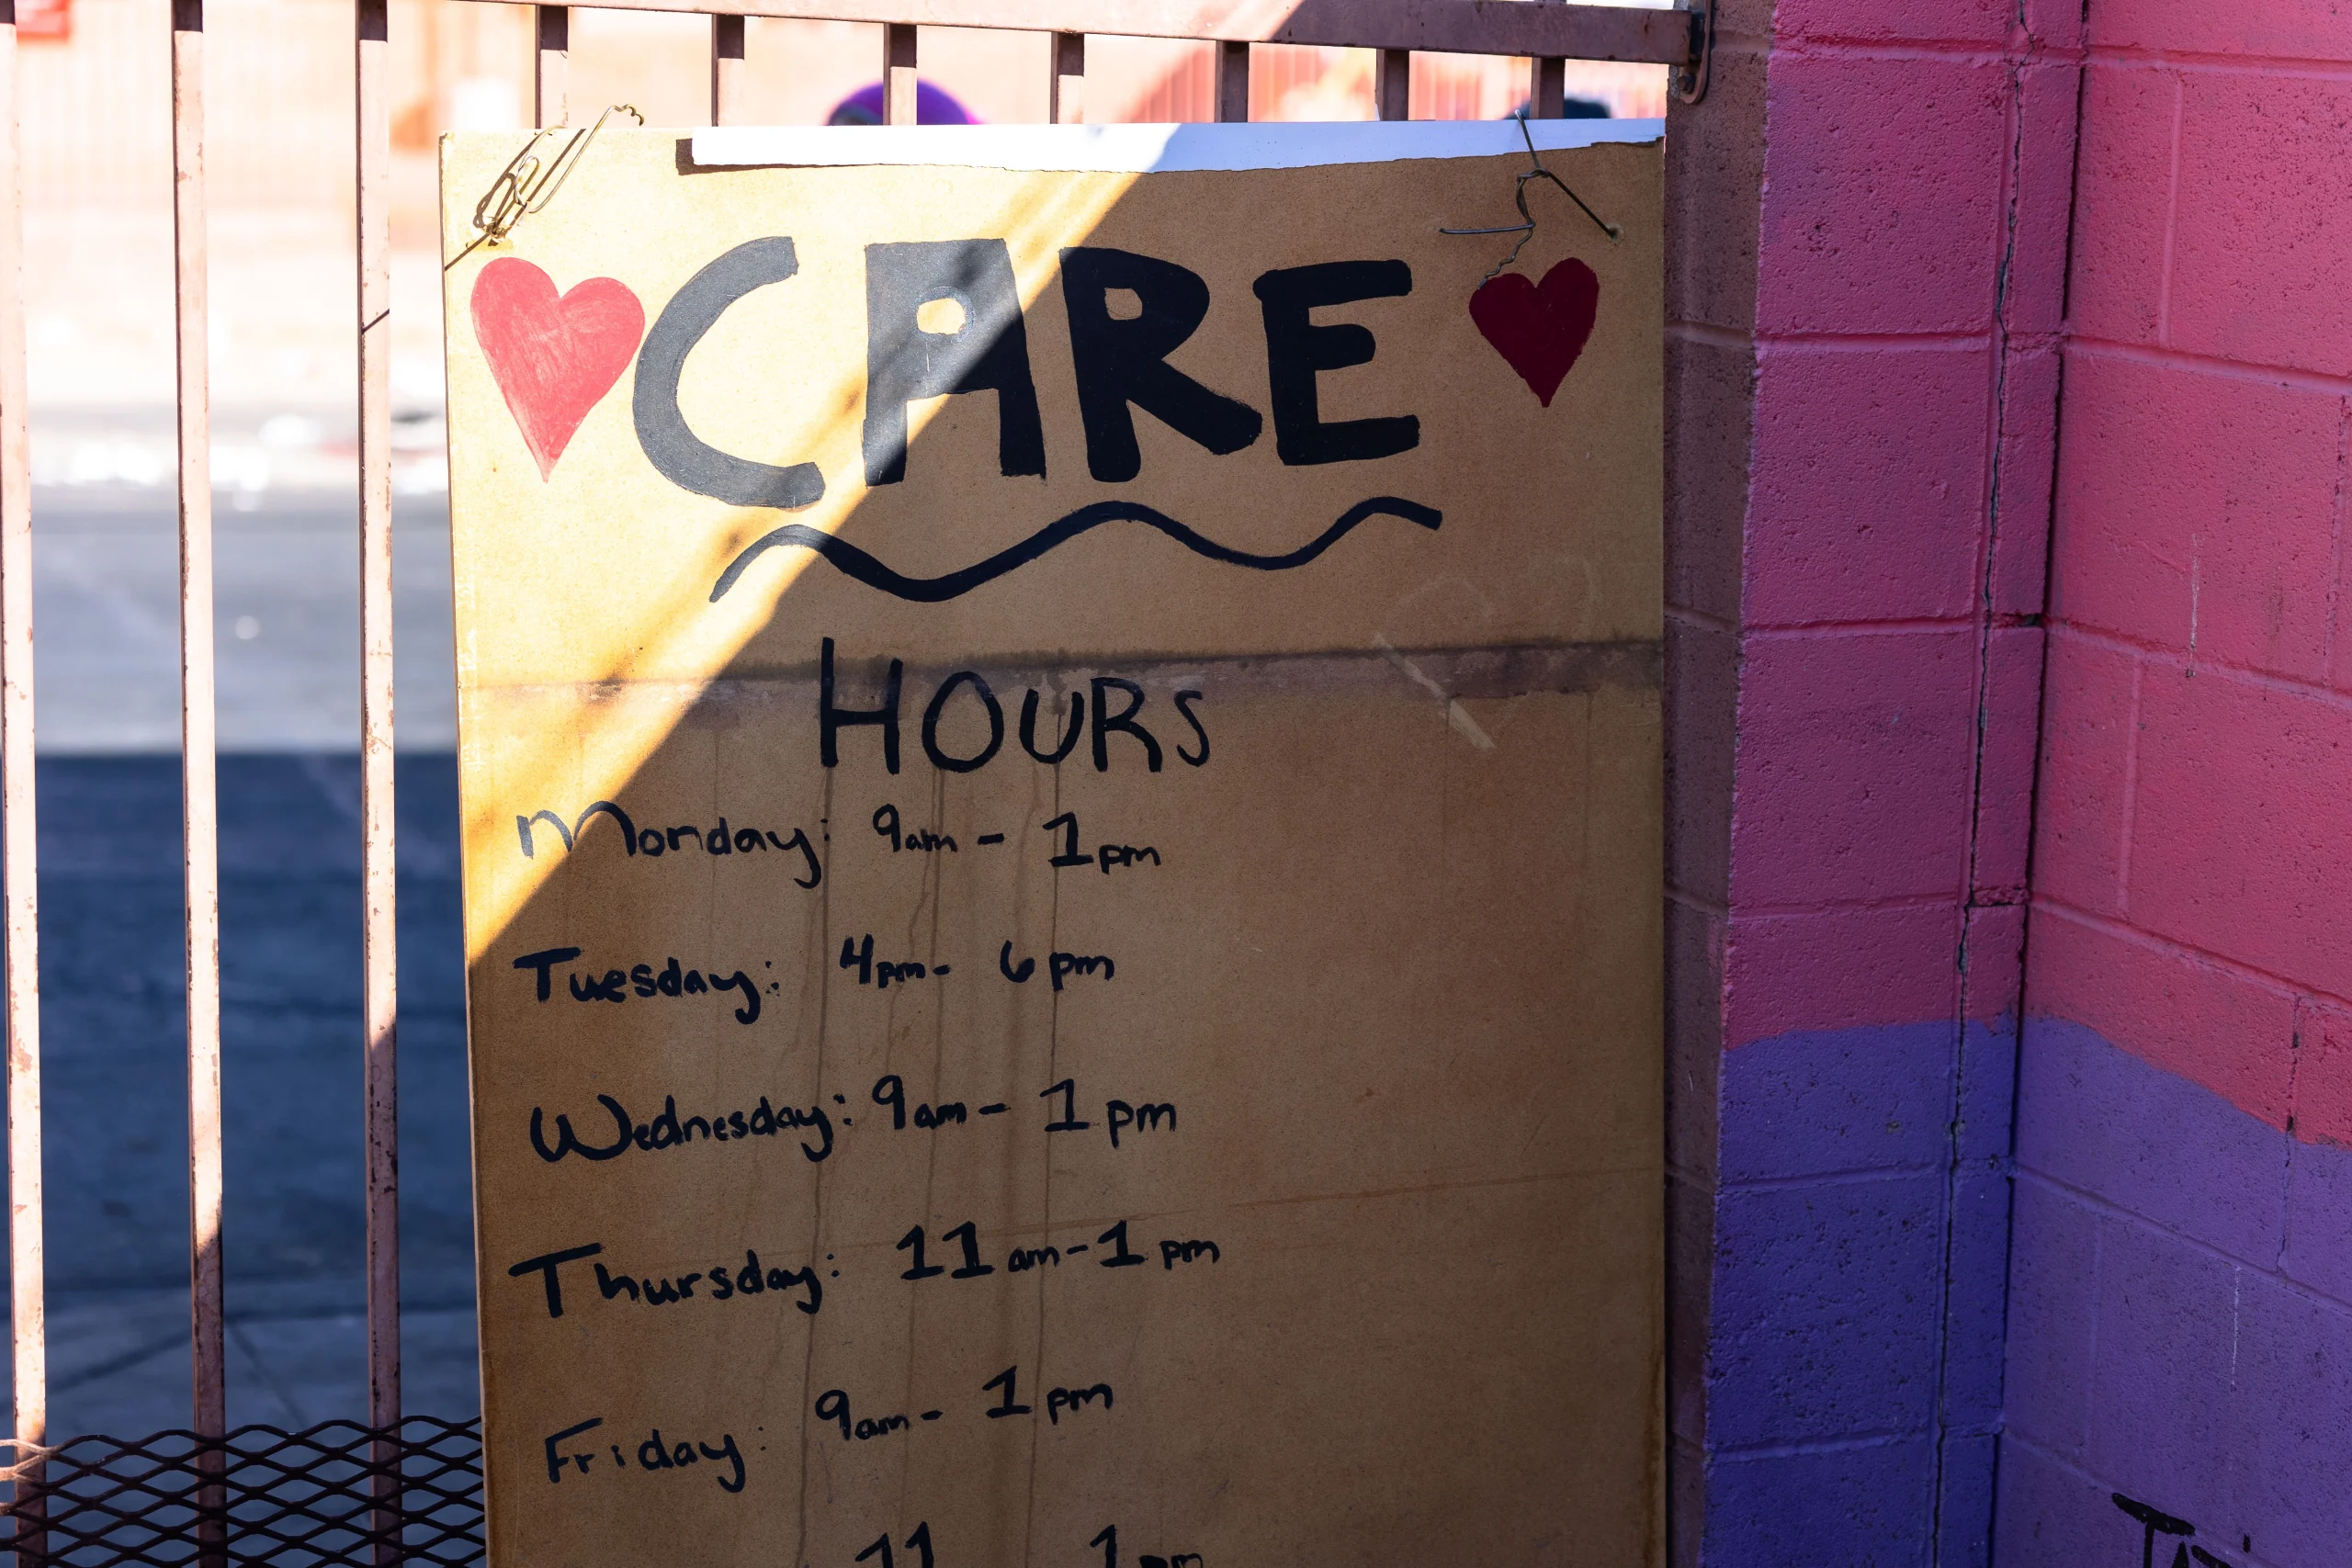 CARE
HOURS
Monday: 9am - 1pm
Tuesday: 4pm - 6pm
Wednesday: 9am - 1pm
Thursday: 11am - 1pm
Friday: 9am - 1pm
11 1pm